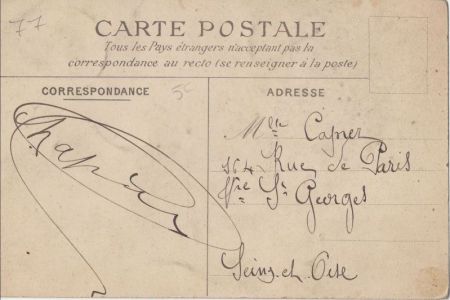 77
CARTE POSTALE
Tous les Pays étrangers n'acceptant pas la
correspondance au recto (se renseigner à la poste)
CORRESPONDANCE
5c
ADRESSE
Mlle
164 Rue de Paris
Vve St Georges
Seine et Oise